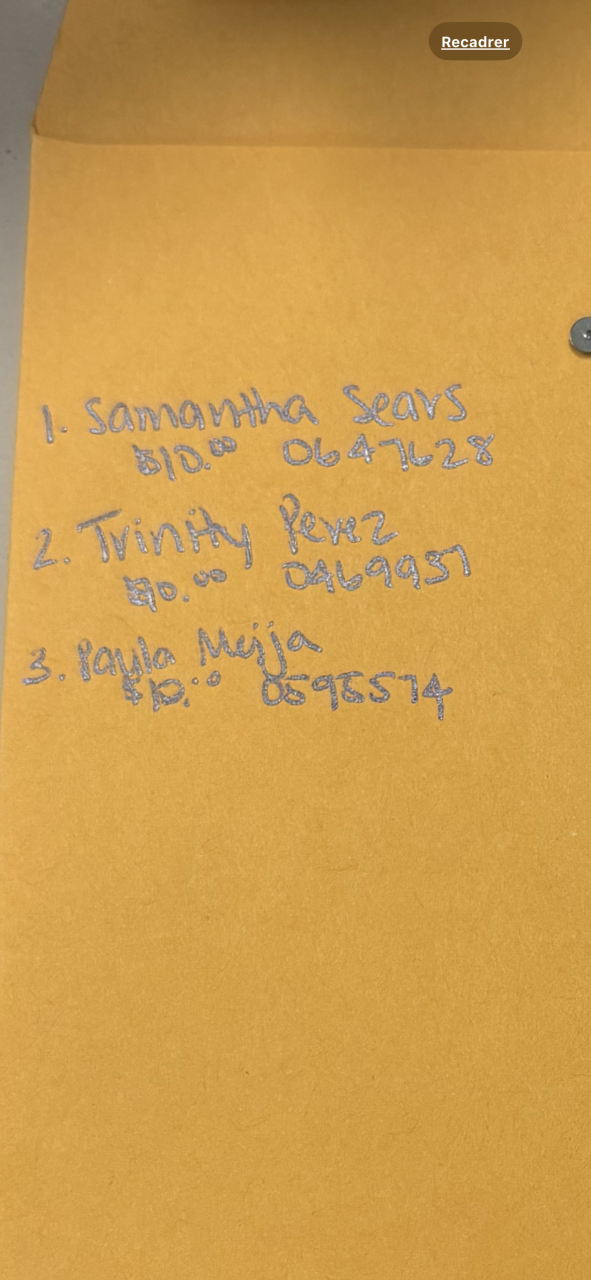 Recadrer
1. Samantha Sears
$10.00 0647628
2. Trinity Perez
$10.00 0469937
3. Paula Mejja
$10.00 0598574